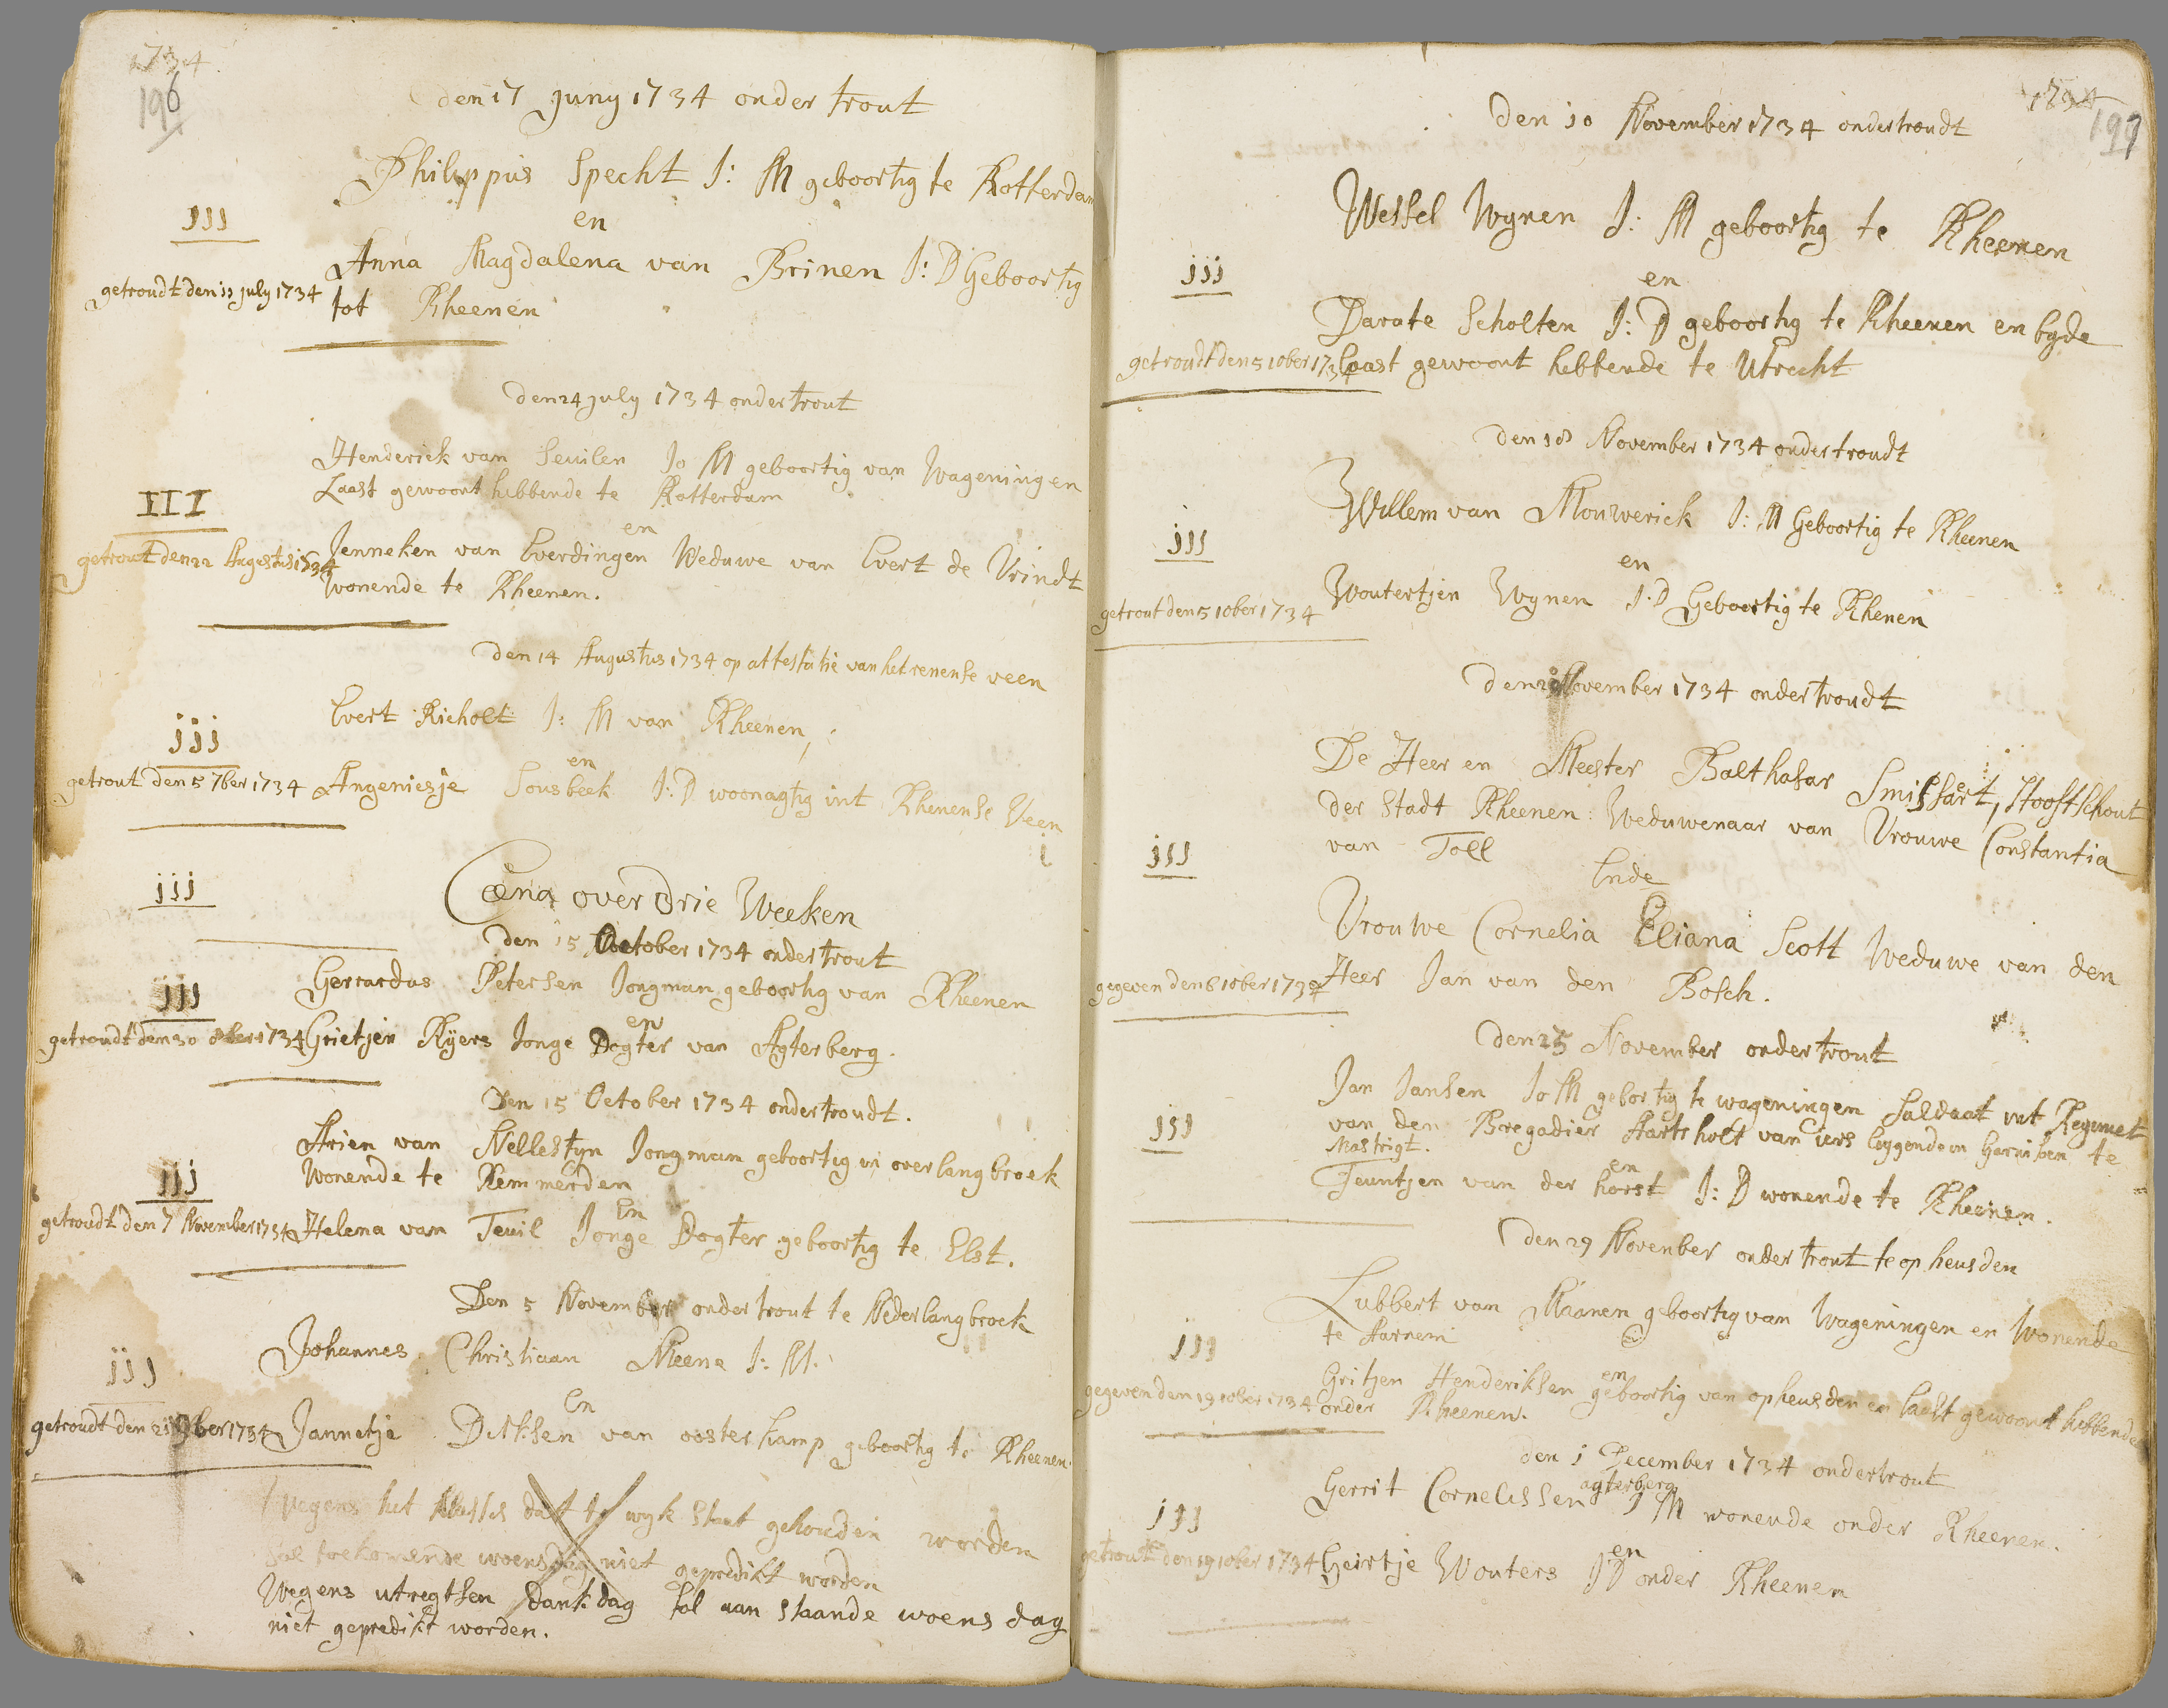 1734
196
den 17 Juny 1734 onder trout
Philippus Specht J: M geboortig te Rotterdam
en
III
Anna Magdalena van Brinen J: D Geboortig
getroudt den 11 july 1734
tot Rheenen
den 24 july 1734 onder trout
Henderick van Seuilen Jo M geboortig van Wageningen
Laast gewoont hebbende te Rotterdam
en
III
Jenneken van Everdingen Weduwe van Evert de Vrindt
getrout den 22 Augustus 1734
wonende te Rheenen.
den 14 Augustus 1734 op attestatie van het renense veen
Evert Richolt J: M van Rheenen,
jjj
en
getrout den 5 7ber 1734
Angeniesje Sousbeek J: D woonagtig int Rhenense Veen
jjj
Cæna over Drie Weeken
den 15 October 1734 onder trout
Gerrardus Petersen Jongman geboortig van Rheenen
jjj
en
getroudt den 30 8ber 1734
Grietjen Ryers Jonge Dogter van Agterberg.
Den 15 October 1734 ondertroudt.
Arien van Nellestyn Jongman geboortig in overlangbroek
Wonende te Remmerden
jjj
En
getroudt den 7 November 1734
Helena van Teuil Jonge Dogter geboortig te Elst.
Den 5 November onder trout te Nederlangbroek
Johannes Christiaan Meene J: M.
jjj
En
getroudt den 21 9ber 1734
Jannetje Dirksen van oosterkamp geboortig te Rheenen.
Wegens het klassis dat te wyk staat gehouden worden
sal toekomende woensdag niet gepredikt worden
Wegens utregtsen dankdag sal aan staande woensdag
niet gepredikt worden.
1734
197
Den 10 November 1734 ondertroudt
Wessel Wynen J: M geboortig te Rheenen
jjj
en
Darate Scholten J: D geboortig te Rheenen en byde
getroudt den 5 10ber 1734
laast gewoont hebbende te Utrecht
den 18 November 1734 ondertroudt
Willem van Mouwerick J: M Geboortig te Rheenen
jjj
en
Woutertjen Wynen J: D Geboortig te Rhenen
getrout den 5 10ber 1734
den 20 November 1734 ondertroudt
De Heer en Meester Balthasar Smissaert, Hooftschout
der Stadt Rheenen: Weduwenaar van Vrouwe Constantia
van Toll
jjj
Ende
Vrouwe Cornelia Eliana Scott Weduwe van den
gegeven den 6 10ber 1734
Heer Jan van den Bosch.
den 25 November onder trout
Jan Jansen Jo M gebortig te wageningen Saldaat int Regiment
van den Bregadier Aarts holt van iers leggende in Garnisoen te
Mastrigt.
jjj
en
Teuntjen van der horst J: D wonende te Rheenen.
den 29 November onder trout te op heusden
Lubbert van Maanen geboortig van Wageningen en Wonende
te Aarnem
jjj
en
Gritjen Henderiksen geboortig van opheusden en laast gewoont hebbende
gegeven den 19 10ber 1734
onder Rheenen.
den 1 December 1734 ondertrout
agterberg
Gerrit Cornelissen J M wonende onder Rheenen.
jjj
en
getrout den 19 10ber 1734
Geirtje Wouters J D onder Rheenen